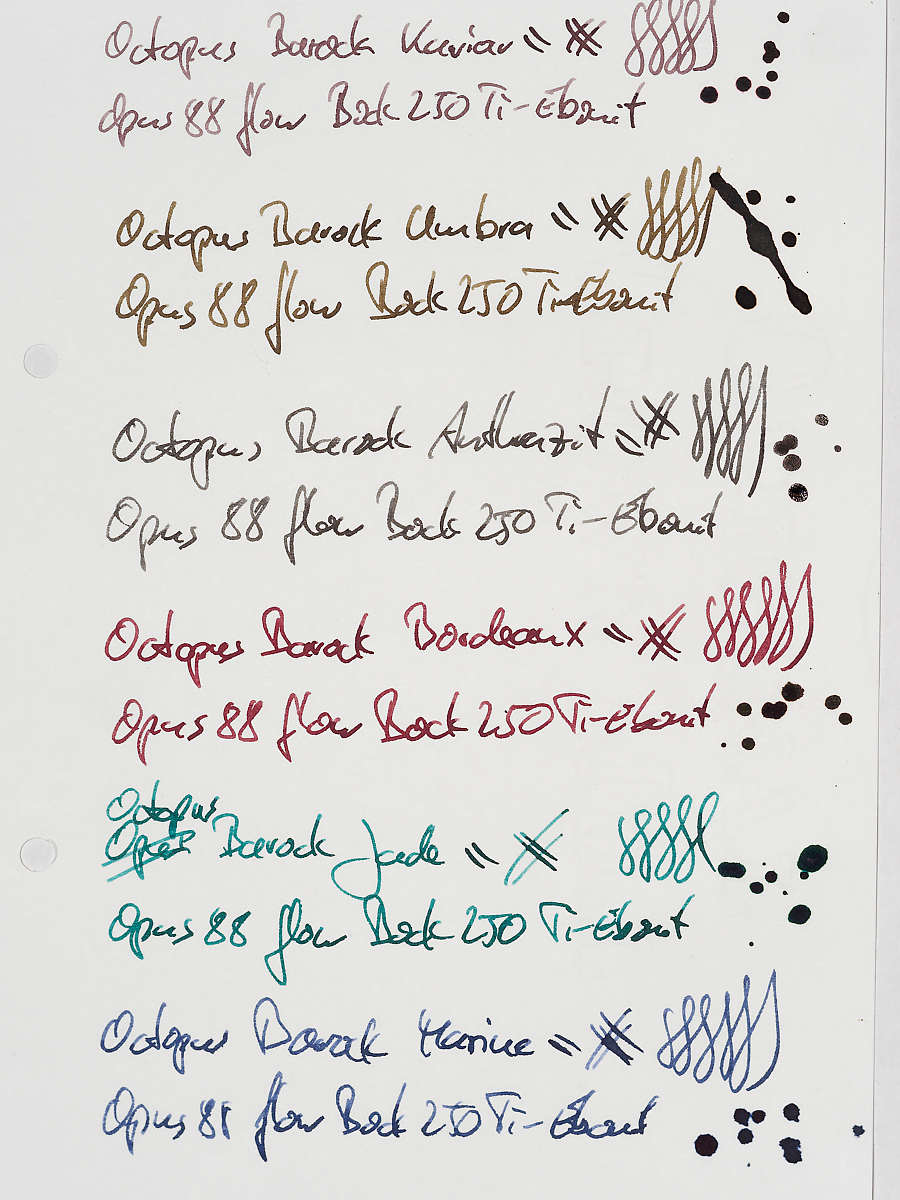 Octopus Barock Kaviar =
Opus 88 flow Bock 250 Ti-Ebonit
Octopus Barock Umbra =
Opus 88 flow Bock 250 Ti-Ebonit
Octopus Barock Anthrazit =
Opus 88 flow Bock 250 Ti-Ebonit
Octopus Barock Bordeaux =
Opus 88 flow Bock 250 Ti-Ebonit
Octopus
Opus Barock Jade =
Opus 88 flow Bock 250 Ti-Ebonit
Octopus Barock Marine =
Opus 88 flow Bock 250 Ti-Ebonit